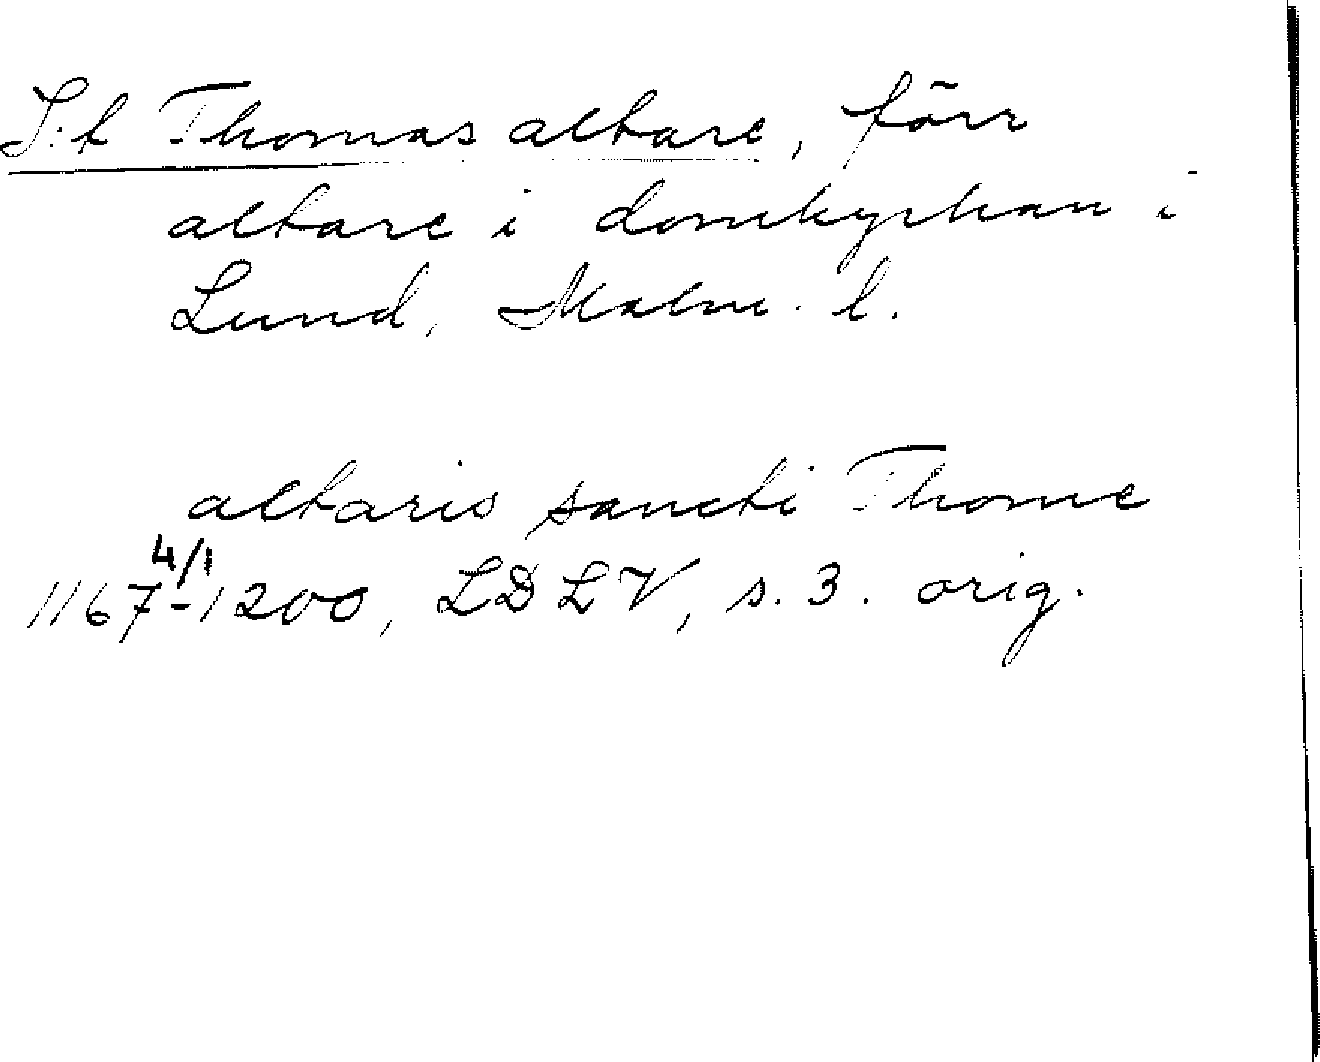 S:t Thomas altare, förr
altare i domkyrkan i
Lund, Malm. l.
altaris sancti Thome
1167 4/1 -1200, LDLV, s. 3. orig.